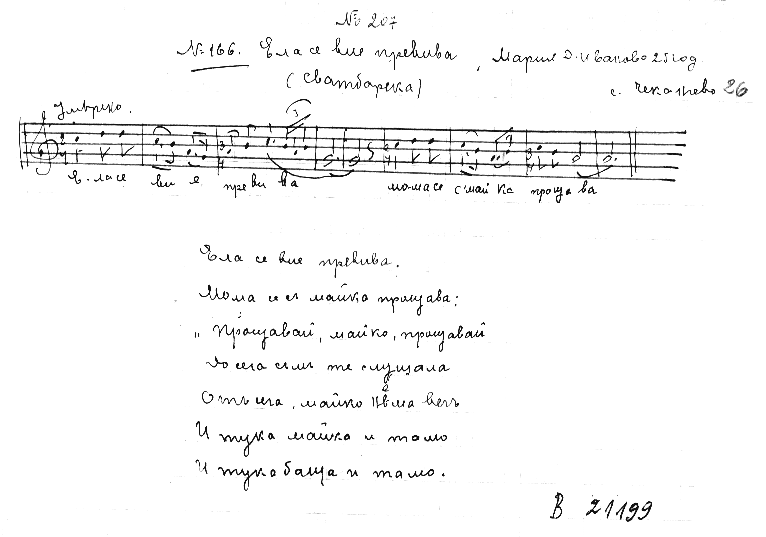 № 207
№ 166. Ела се вие превива, Мария Д. Иванова 25 год
(Сватбарска) с. Чеканчево 26
Умерено.
Е. ла се ви е преви ва мома се с'май ка проща ва
Ела се вие превива.
Мома се с майка прощава:
„Прощавай, майко, прощавай
До сега съмъ те слушала
Отъ сега, майко нѣма вечъ
И тука майка и тамо
И тука баща и тамо.
В 21199